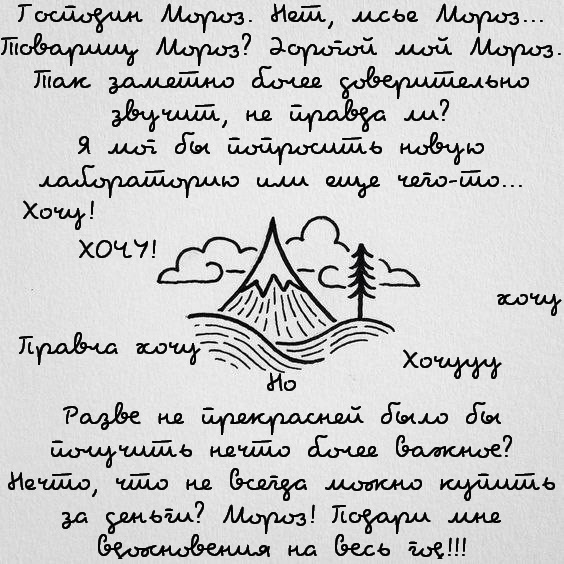 Господин Мороз. Нет, мсье Мороз...
Товарищ Мороз? Дорогой мой Мороз.
Так заметно более доверительно
звучит, не правда ли?
Я мог бы попросить новую
лабораторию или еще чего-то...
Хочу!
ХОЧУ!
хочу
Правла хочу
Хочууу
Но
Разве не прекрасней было бы
получить нечто более важное?
Нечто, что не всегда можно купить
за деньги? Мороз! Подари мне
вдохновения на весь год!!!